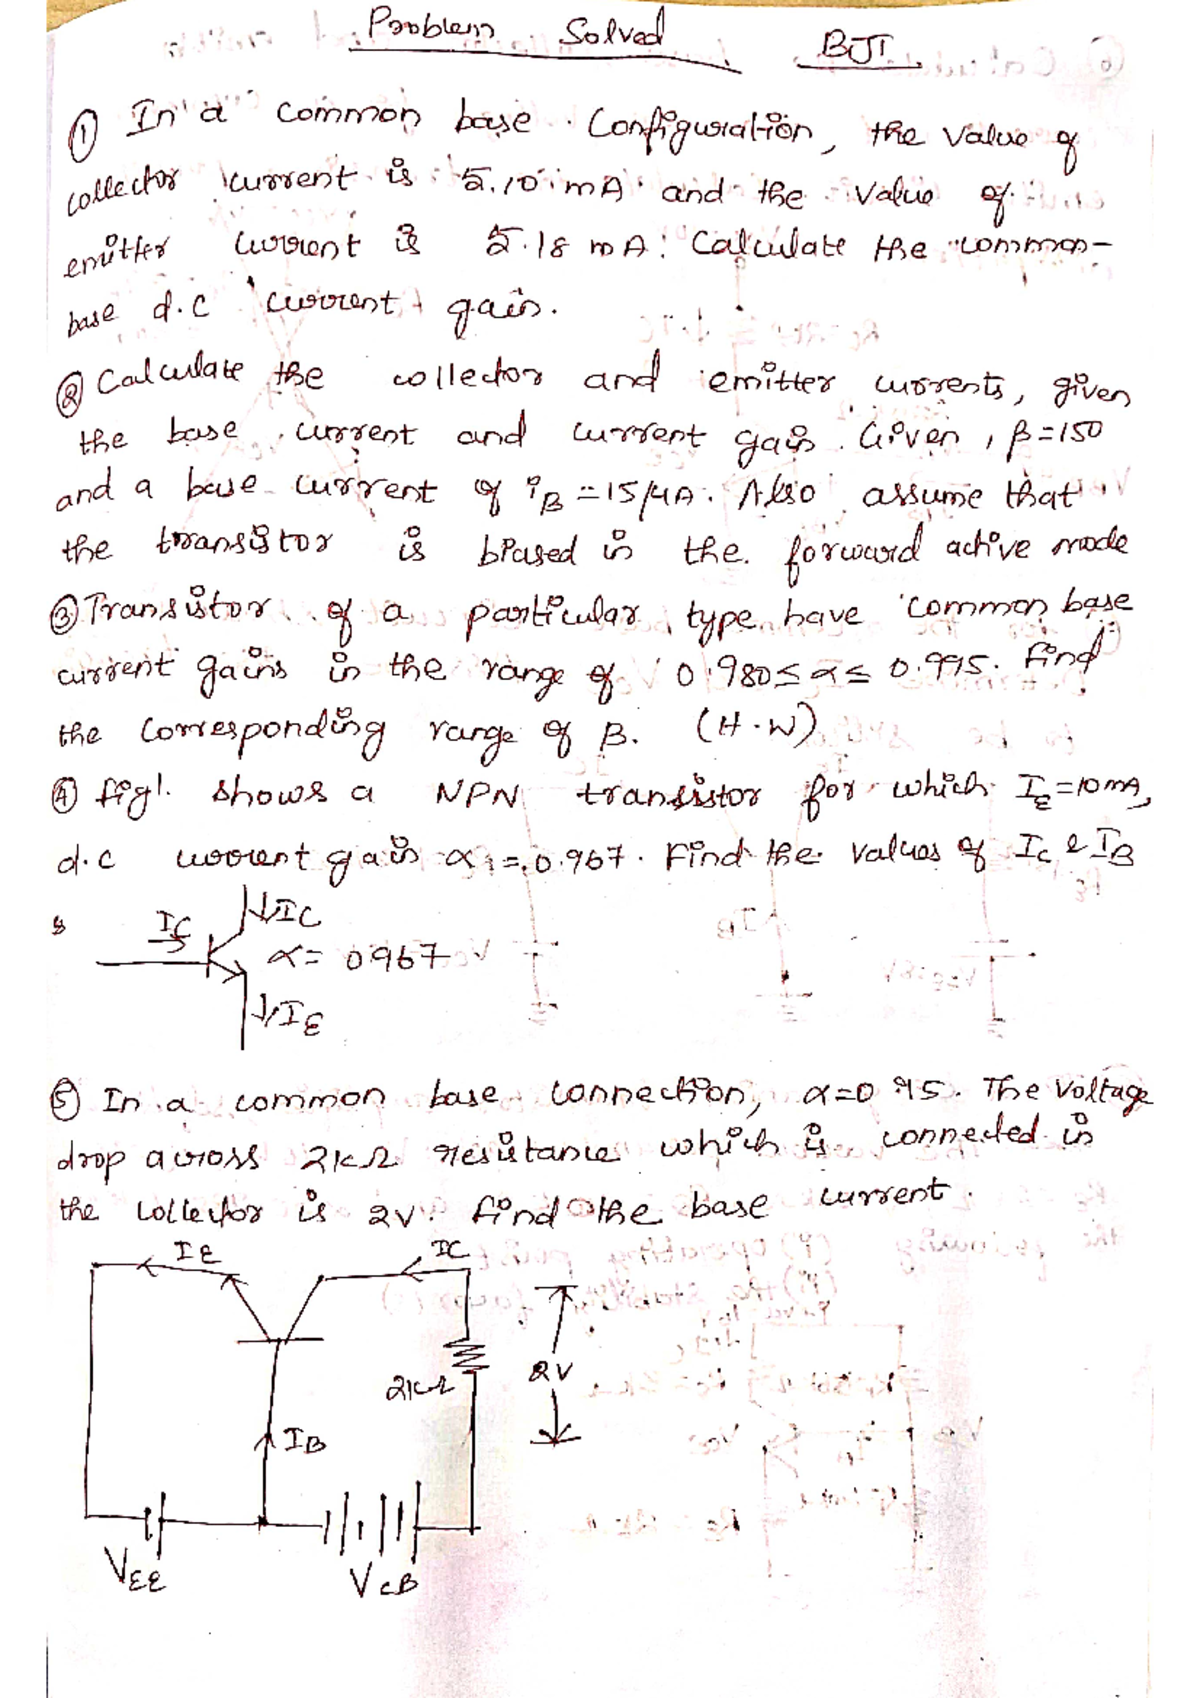 Problem Solved BJT
① In a common base Configuration, the value of
collector current is 5.10 mA and the value of
emitter current is 5.18 mA. Calculate the common-
base d.c current gain.
② Calculate the collector and emitter currents, given
the base current and current gain. Given, β=150
and a base current of iB = 15μA. Also assume that
the transistor is biased in the forward active mode
③ Transistor of a particular type have common base
current gains in the range of 0.980 ≤ α ≤ 0.995. Find
the corresponding range of β. (H.W)
④ fig1. shows a NPN transistor for which IE=10mA,
d.c current gain α = 0.967. Find the values of IC & IB
IC ↓IC
α= 0.967
↓IE
⑤ In a common base connection, α=0.95. The voltage
drop across 2kΩ resistance which is connected in
the collector is 2V. find the base current.
IE IC
2kΩ 2V
IB
VEE VCB